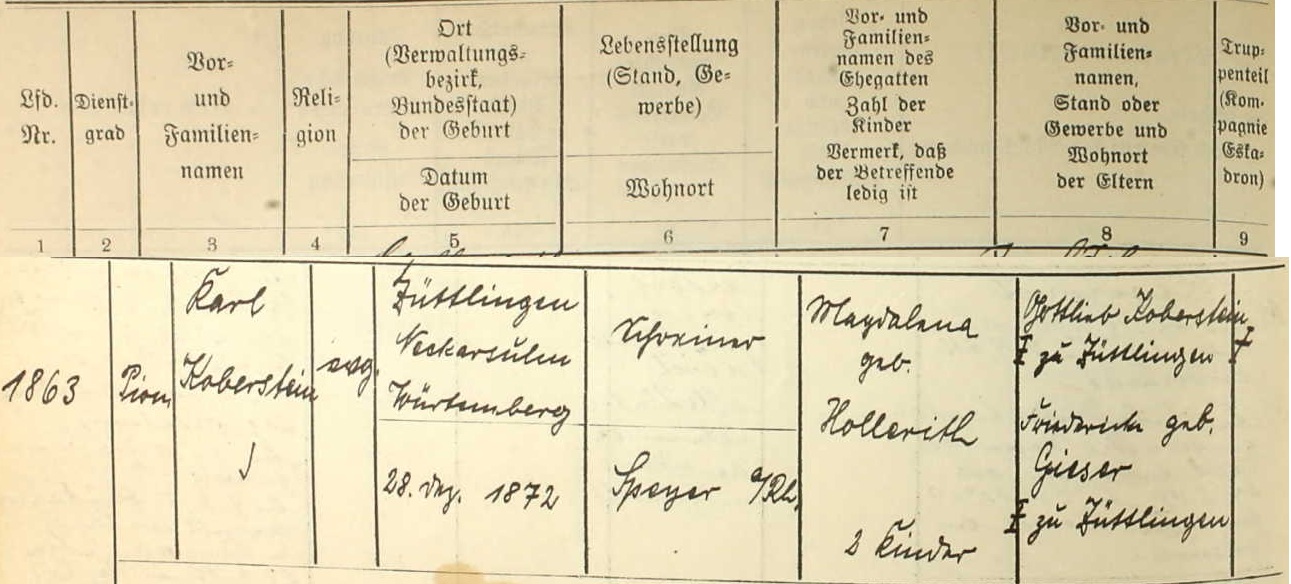 Lfd.
Nr.
Dienst-
grad
Vor-
und
Familien-
namen
Reli-
gion
Ort
(Verwaltungs-
bezirk,
Bundesstaat)
der Geburt
Datum
der Geburt
Lebensstellung
(Stand, Ge-
werbe)
Wohnort
Vor- und
Familien-
namen des
Ehegatten
Zahl der
Kinder
Vermerk, daß
der Betreffende
ledig ist
Vor- und
Familien-
namen,
Stand oder
Gewerbe und
Wohnort
der Eltern
Trup-
penteil
(Kom-
pagnie
Eska-
dron)
1
2
3
4
5
6
7
8
9
1863
Pion.
Karl
Koberstein
evg.
Züttlingen
Neckarsulm
Württemberg
28. Dez. 1872
Schreiner
Speyer a/Rh.
Magdalena
geb.
Hollerith
2 Kinder
Gottlieb Koberstein
zu Züttlingen
Friedericke geb.
Gieser
zu Züttlingen